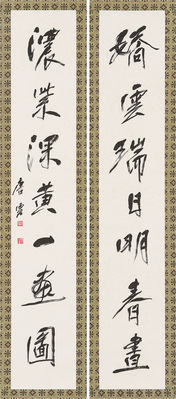 嬌雲瑞日明春晝
濃紫深黃一畫圖
唐雲